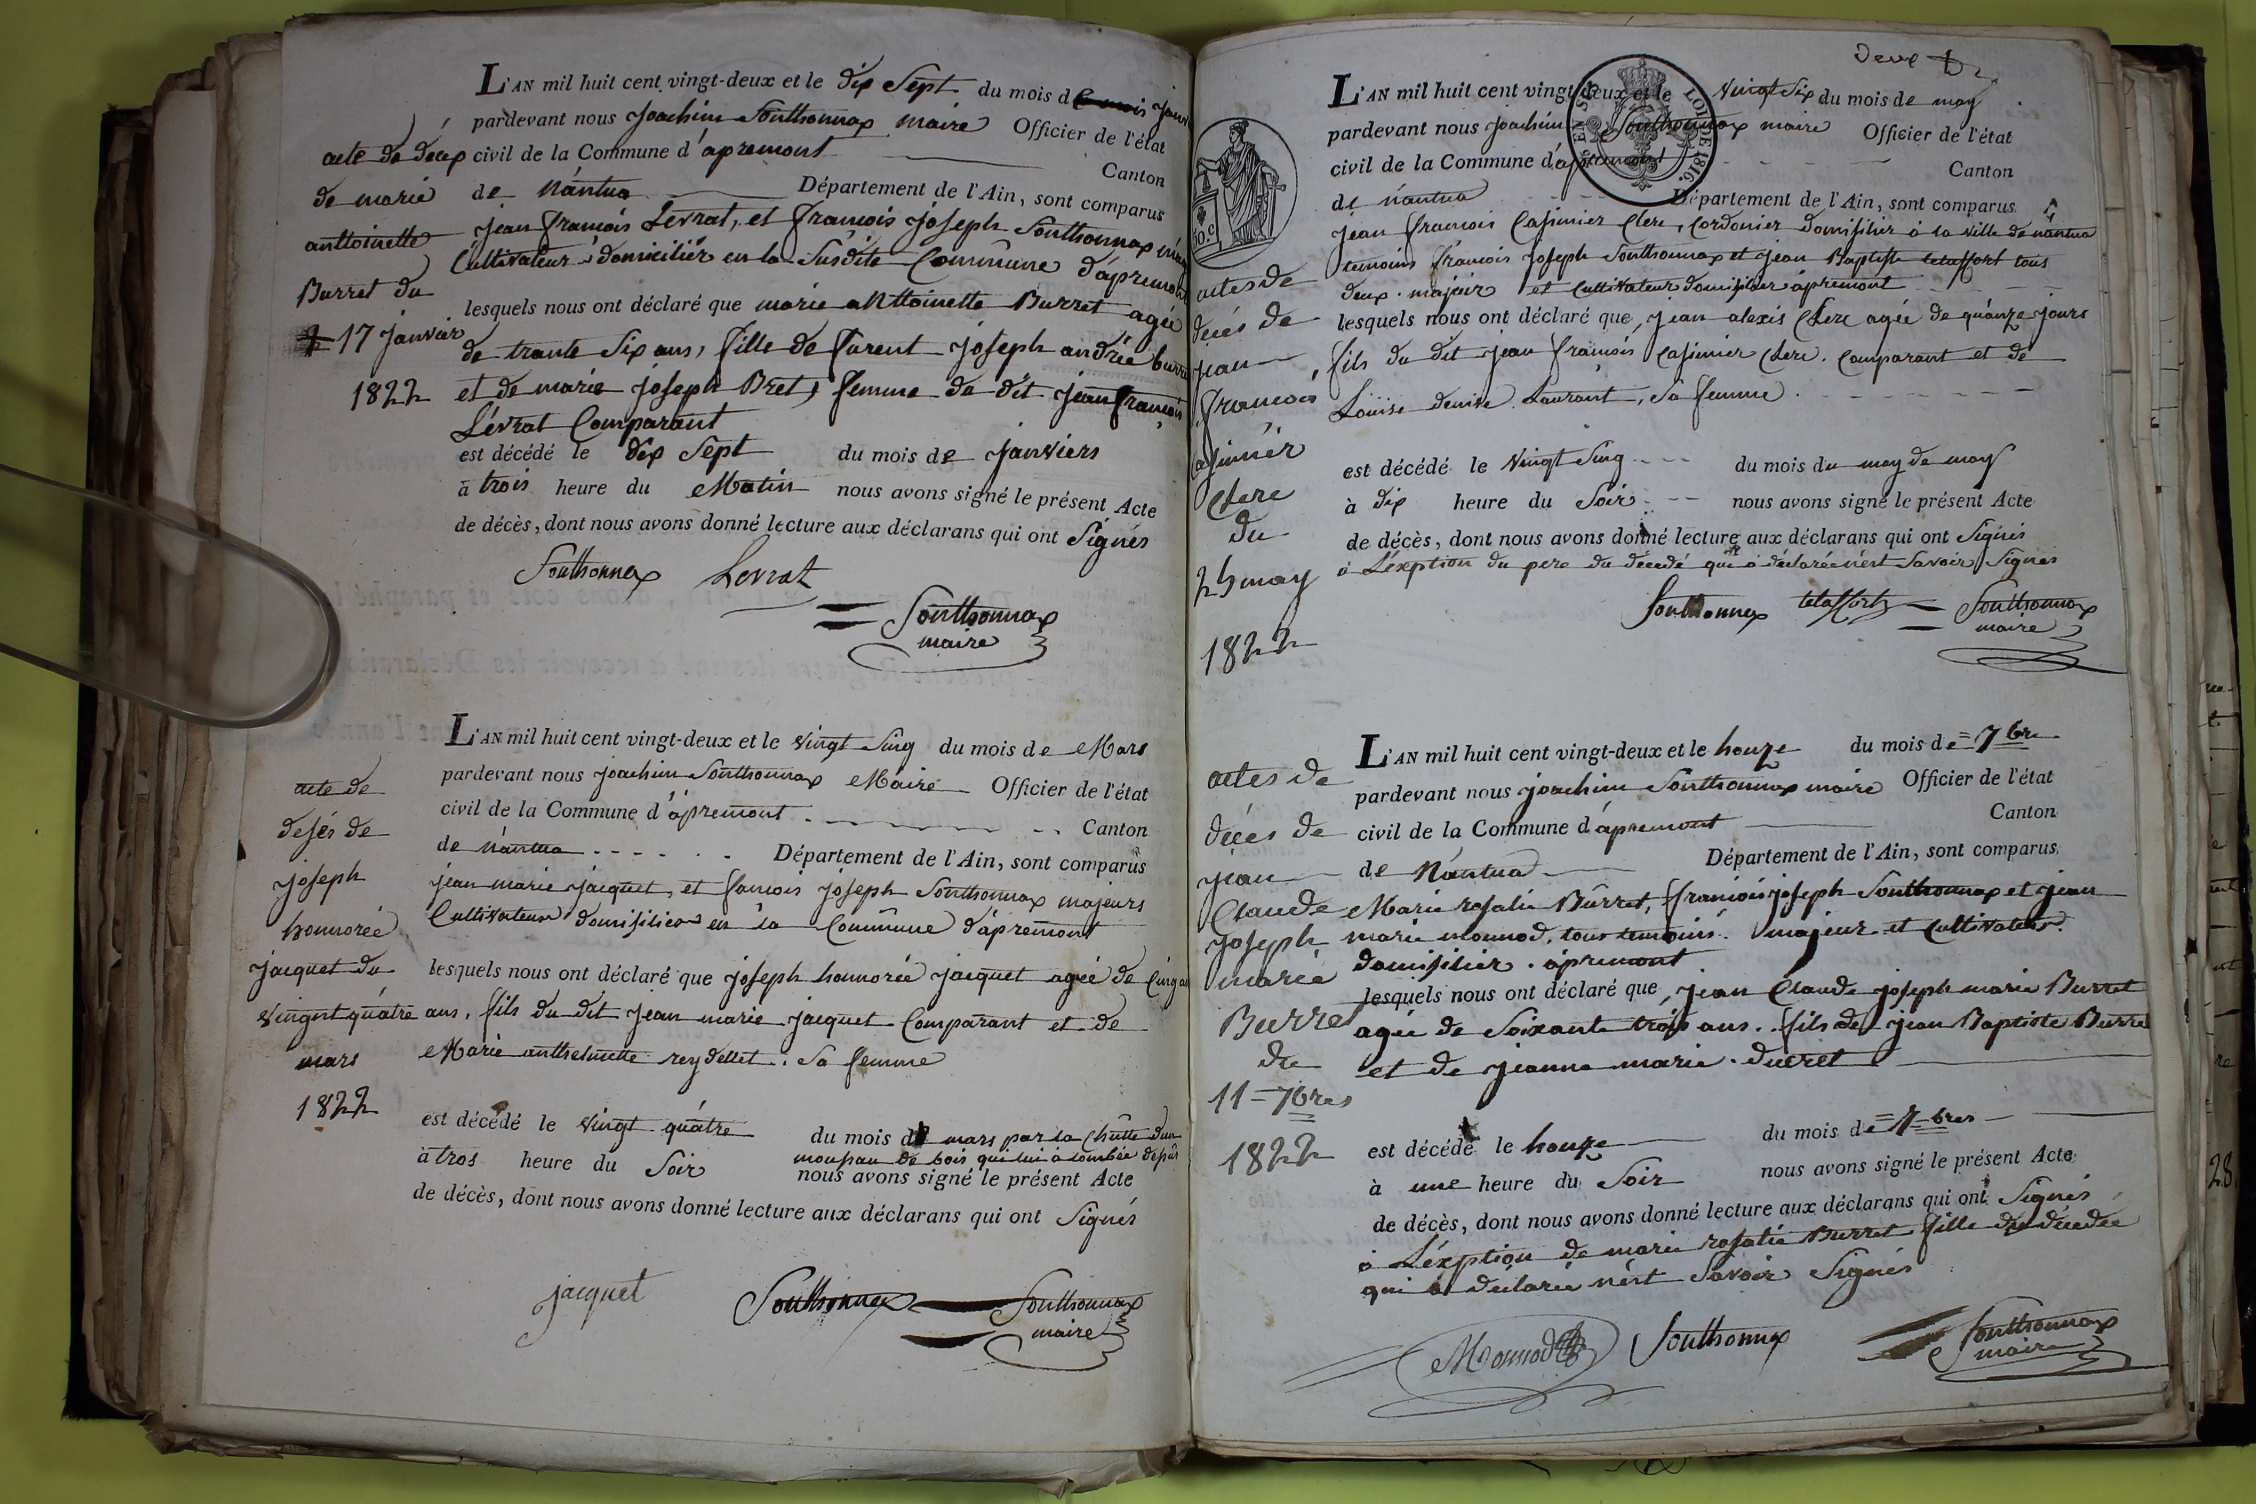 acte de décx
de marie
anttoinette
Burret du
17 janvier
1822
L'AN mil huit cent vingt-deux et le dix Sept du mois de janv
pardevant nous joachim Sonthonnax maire Officier de l'état
civil de la Commune d'apremont
Canton
de nántua Département de l'Ain, sont comparus
jean francois Levrat, et francois joseph Sonthonnax
Cultivateur domicilier en la Susdite Commune d'ápremont
lesquels nous ont déclaré que marie anttoinette Burret agée
de trante Six ans, fille de furent joseph andrée burret
et de marie joseph Bret, femme de dit jean francois
Lévrat Comparant
est décédé le dix Sept du mois de janviers
à trois heure du Matin nous avons signé le présent Acte
de décès, dont nous avons donné lecture aux déclarans qui ont Signés
Sonthonnax Levrat
Sonthonnax
maire
acte de
desés de
joseph
honnorée
jacquet du
vingnt quátre
mars
1822
L'AN mil huit cent vingt-deux et le vingt Sinq du mois de Mars
pardevant nous joachim Sonthonnax Maire Officier de l'état
civil de la Commune d'ápremont
Canton
de nántua Département de l'Ain, sont comparus
jean marie jacquet, et francois joseph Sonthonnax majeurs
Cultivateur domisilier en la Commune d'ápremont
lesquels nous ont déclaré que joseph honnorée jacquet agée de Cinq
ans, fils du dit jean marie jacquet Comparant et de
Marie anthelmette reydellet. Sa femme
est décédé le vingt quátre du mois de mars par la Chûtte d'un
mousau de bois qui lui à tombée depús
à tros heure du Soir nous avons signé le présent Acte
de décès, dont nous avons donné lecture aux déclarans qui ont Signés
jacquet Sonthonnax Sonthonnax
maire
deux
LOI DE 1816.
50.c
actes de
décés de
jean
francois
Casimier
Clerc
du
25 may
1822
L'AN mil huit cent vingt-deux et le vingt Six du mois de may
pardevant nous joachim Sonthonnax maire Officier de l'état
civil de la Commune d'ápremont
Canton
de nántua Département de l'Ain, sont comparus
jean francois Casimier Clerc, Cordonier domisilier à la ville de nántua
temoins francois joseph Sonthonnax et jean Baptiste tetaffort tous
deux majeur et Cultivateur domisilier ápremont
lesquels nous ont déclaré que, jean alexis Clerc agée de quánze jours
fils du dit jean francois Casimier Clerc. Comparant et de
Loüise denise Laurant, Sa femme
est décédé le vingt Sinq du mois du may de may
à dix heure du Soir nous avons signé le présent Acte
de décès, dont nous avons donné lecture aux déclarans qui ont Signés
à L'éxption du pere du décedé qui à déclarée nést Savoir Signés
Sonthonnax tetaffort Sonthonnax
maire
actes de
décés de
jean
Claude
joseph
marie
Burret
du
11 = 7bres
1822
L'AN mil huit cent vingt-deux et le honze du mois de = 7bre
pardevant nous joachim Sonthonnax maire Officier de l'état
civil de la Commune d'ápremont
Canton
de Nántua Département de l'Ain, sont comparus
Marie rosalie Bûrret, francois joseph Sonthonnax et jean
marie monnod, tous temoins. majeur et Cultivateur.
domisilier. ápremont
lesquels nous ont déclaré que, jean Claude joseph marie Burret
agée de Soixante trois ans. fils de jean Baptiste Burret
et de jeanne marie. ducret
est décédé le honze du mois de = 7bres
à une heure du Soir nous avons signé le présent Acte
de décès, dont nous avons donné lecture aux déclarans qui ont Signés
à L'éxption de marie rosalie Burret fille du décedée
qui à déclarée nést Savoir Signés
Monnod Sonthonnax Sonthonnax
maire
28